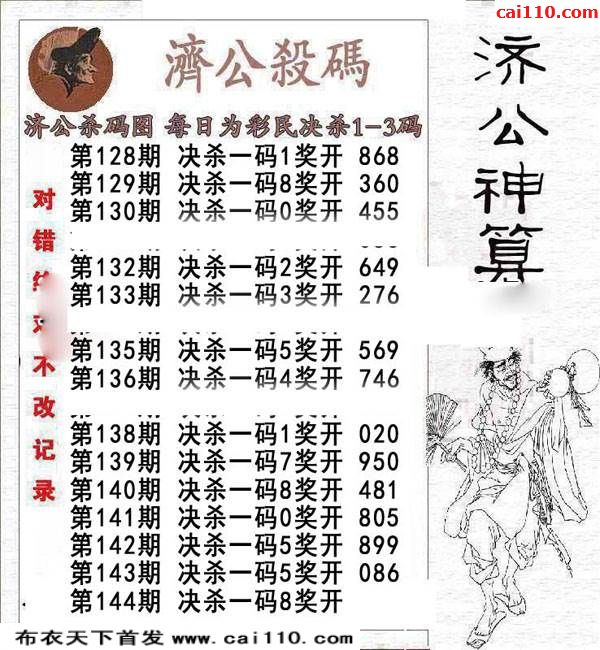 cai110.com
濟公殺碼
济公神算
济公杀码图 每日为彩民决杀1-3码
第128期 决杀一码1奖开 868
第129期 决杀一码8奖开 360
第130期 决杀一码0奖开 455
第132期 决杀一码2奖开 649
第133期 决杀一码3奖开 276
第135期 决杀一码5奖开 569
第136期 决杀一码4奖开 746
第138期 决杀一码1奖开 020
第139期 决杀一码7奖开 950
第140期 决杀一码8奖开 481
第141期 决杀一码0奖开 805
第142期 决杀一码5奖开 899
第143期 决杀一码5奖开 086
第144期 决杀一码8奖开
对错不改记录
布衣天下首发 www.cai110.com